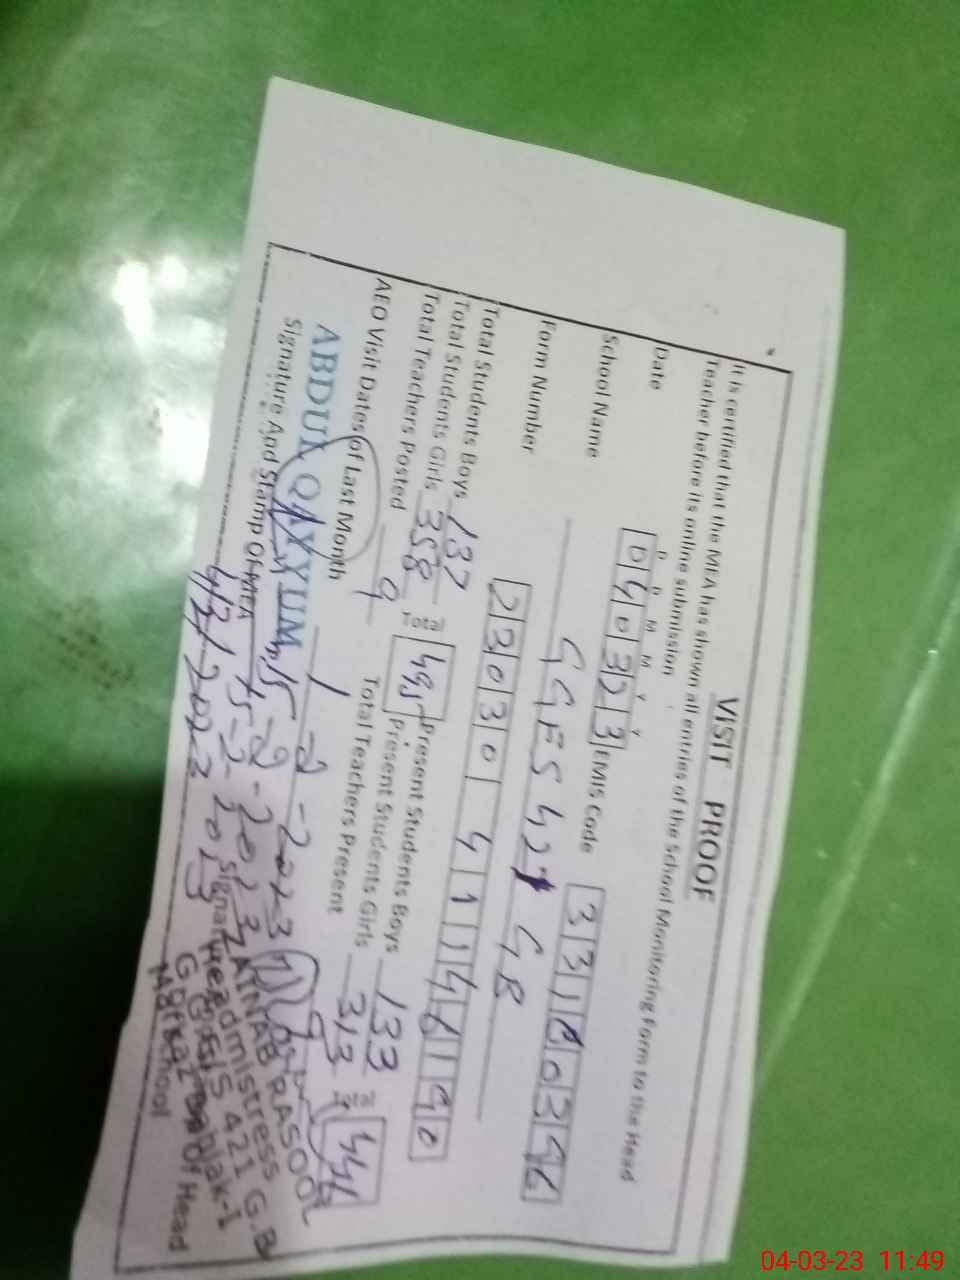 VISIT PROOF
It is certified that the MEA has shown all entries of the School Monitoring Form to the Head
Teacher before its online submission
D D M M Y Y
Date 040323 EMIS Code 331
School Name GGES 421 GB
Form Number 23030 4114
Total Students Boys 137 Present Students Boys 133
Total Students Girls 358 Total 495 Present Students Girls 313 Total 446
Total Teachers Posted 9 Total Teachers Present 9
AEO Visit Dates of Last Month 1-2-2023
15-2-2023
ABDUL QAYYUM
Signature And Stamp Of MEA
ZAINAB RASOOL
Headmistress
GGES 421 G.B
Markaz
Signature of Head
School
04-03-23 11:49